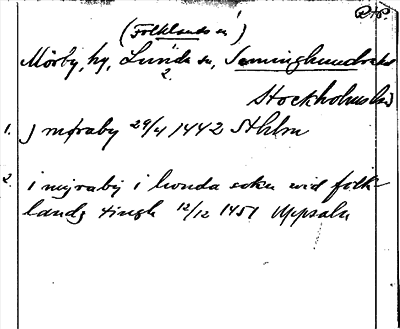 (Folklands sn)
Mörby, hg, Lunda sn, Seminghundra hd
Stockholms län
1. J møraby 29/4 1442 Sthlm
2. i myraby i lwnda sokn wid folk-
landz tingh 12/12 1451 Uppsala